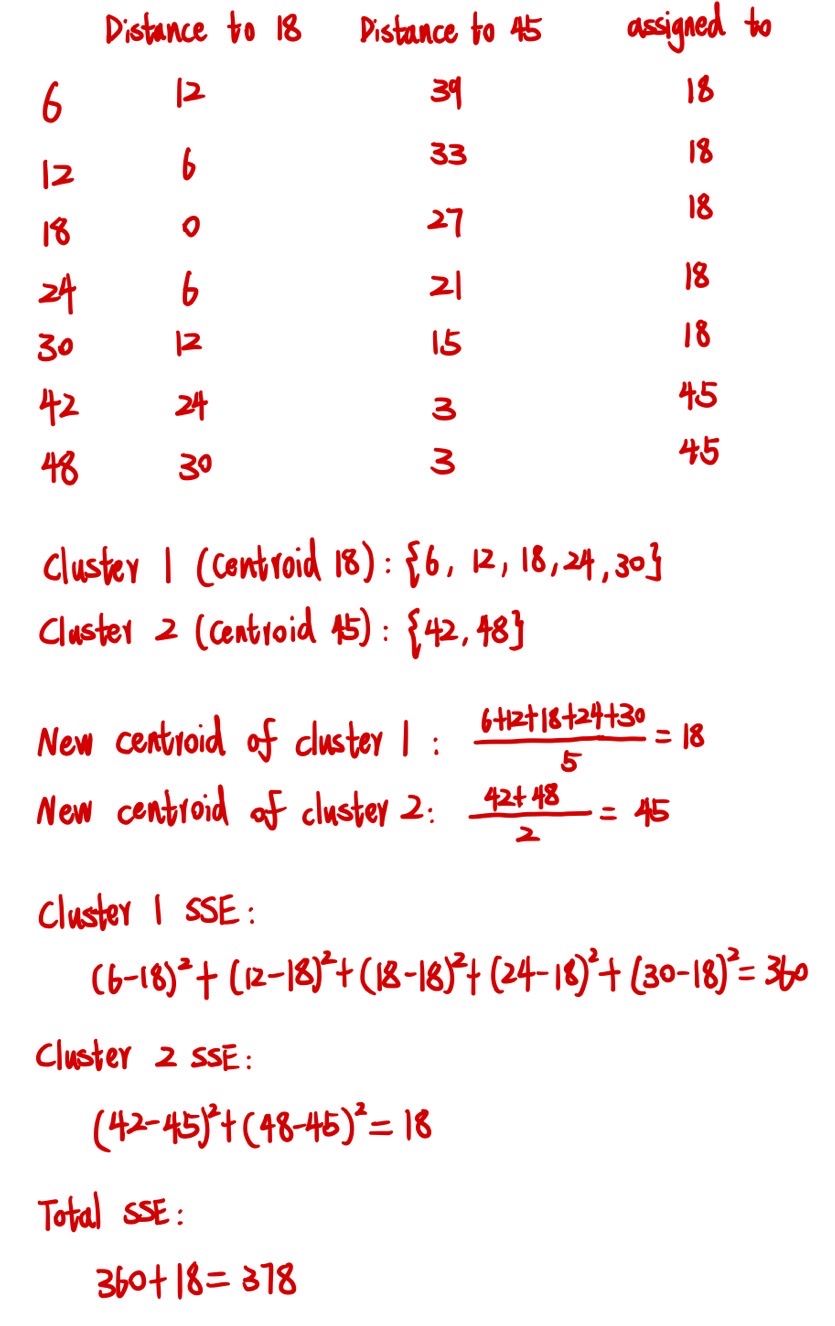 Distance to 18 Distance to 45 assigned to
6 12 39 18
12 6 33 18
18 0 27 18
24 6 21 18
30 12 15 18
42 24 3 45
48 30 3 45
Cluster 1 (centroid 18) : {6, 12, 18, 24, 30}
Cluster 2 (centroid 45) : {42, 48}
New centroid of cluster 1 : (6+12+18+24+30)/5 = 18
New centroid of cluster 2: (42+48)/2 = 45
Cluster 1 SSE:
(6-18)²+(12-18)²+(18-18)²+(24-18)²+(30-18)²=360
Cluster 2 SSE:
(42-45)²+(48-45)²=18
Total SSE:
360+18=378